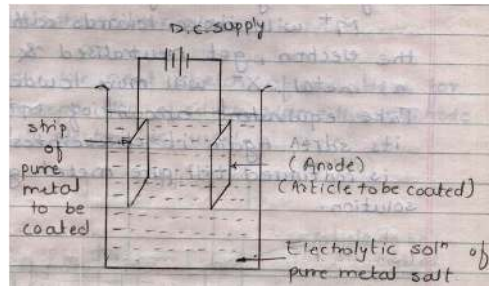 D.C. supply
strip
of
pure
metal
to be
coated
(Anode)
(Article to be coated)
Electrolytic soln of
pure metal salt